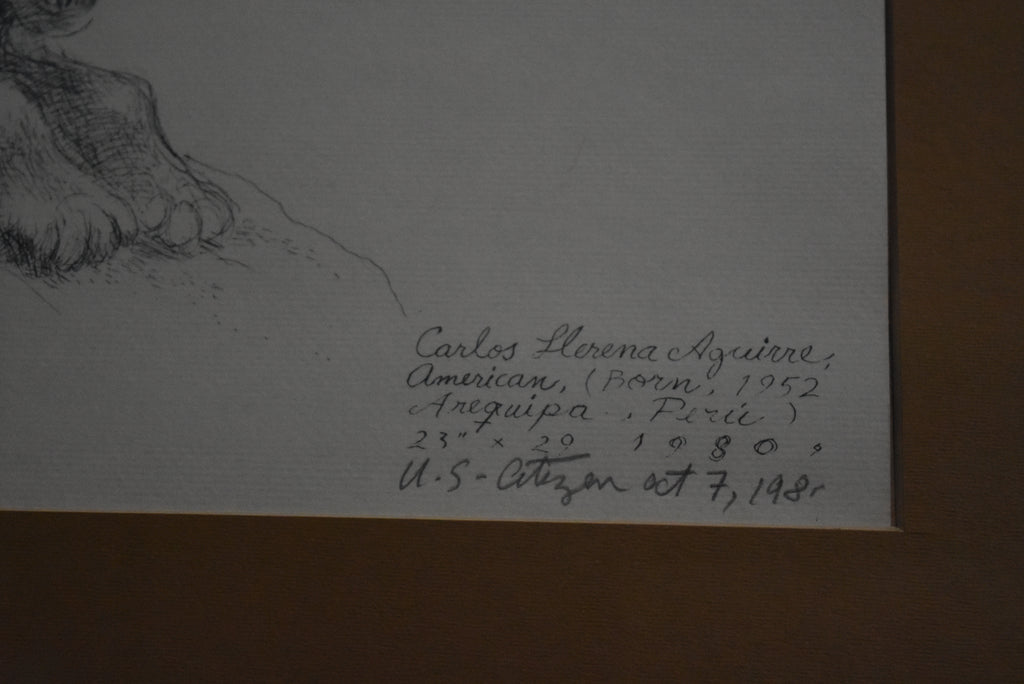 Carlos Llerena Aguirre,
American, (Born, 1952
Arequipa, Perú)
23" x 29 1980,
U.S-Citizen oct 7,